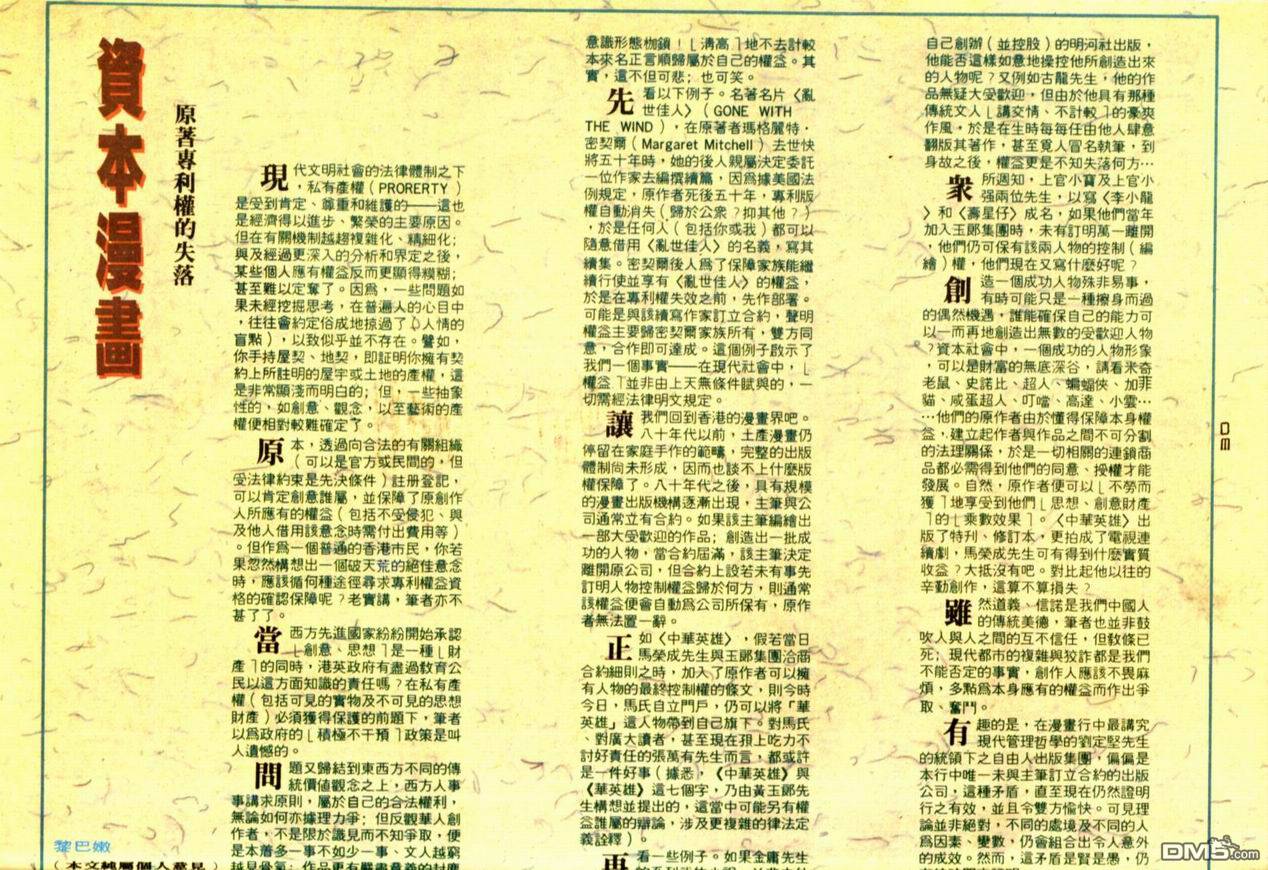 資本漫畫
原著專利權的失落
現代文明社會的法律體制之下
，私有產權（PRORERTY）
是受到肯定、尊重和維護的——這也
是經濟得以進步、繁榮的主要原因。
但在有關機制越趨複雜化、精細化；
與及經過更深入的分析和界定之後，
某些個人應有權益反而更顯得糢糊；
甚至難以定奪了。因為，一些問題如
果未經挖掘思考，在普遍人的心目中
，往往會約定俗成地掠過了（人情的
盲點），以致似乎並不存在。譬如，
你手持屋契、地契，即証明你擁有契
約上所註明的屋宇或土地的產權，這
是非常顯淺而明白的；但，一些抽象
性的，如創意、觀念，以至藝術的產
權便相對較難確定了。
原本，透過向合法的有關組織
（可以是官方或民間的，但
受法律約束是先決條件）註册登記，
可以肯定創意誰屬，並保障了原創作
人所應有的權益（包括不受侵犯、與
及他人借用該意念時需付出費用等）
。但作為一個普通的香港市民，你若
果忽然構想出一個破天荒的絕佳意念
時，應該循何種途徑尋求專利權益資
格的確認保障呢？老實講，筆者亦不
甚了了。
當西方先進國家紛紛開始承認
「創意、思想」是一種「財
產」的同時，港英政府有盡過敎育公
民以這方面知識的責任嗎？在私有產
權（包括可見的實物及不可見的思想
財產）必須獲得保護的前題下，筆者
以為政府的「積極不干預」政策是叫
人遺憾的。
問題又歸結到東西方不同的傳
統價值觀念之上，西方人事
事講求原則，屬於自己的合法權利，
無論如何亦據理力爭；但反觀華人創
作者，不是限於識見而不知爭取，便
是本着多一事不如少一事、文人越窮
越見骨氣
黎巴嫩
意識形態枷鎖！「淸高」地不去計較
本來名正言順歸屬於自己的權益。其
實，這不但可悲；也可笑。
先看以下例子。名著名片〈亂
世佳人〉（GONE WITH
THE WIND），在原著者瑪格麗特．
密契爾（Margaret Mitchell）去世快
將五十年時，她的後人親屬決定委託
一位作家去編撰續篇，因為據美國法
例規定，原作者死後五十年，專利版
權自動消失（歸於公衆？抑其他？）
，於是任何人（包括你或我）都可以
隨意借用〈亂世佳人〉的名義，寫其
續集。密契爾後人為了保障家族能繼
續行使並享有〈亂世佳人〉的權益，
於是在專利權失效之前，先作部署。
可能是與該續寫作家訂立合約，聲明
權益主要歸密契爾家族所有，雙方同
意，合作即可達成。這個例子啟示了
我們一個事實——在現代社會中，「
權益」並非由上天無條件賦與的，一
切需經法律明文規定。
讓我們回到香港的漫畫界吧。
八十年代以前，土產漫畫仍
停留在家庭手作的範疇，完整的出版
體制尚未形成，因而也談不上什麼版
權保障了。八十年代之後，具有規模
的漫畫出版機構逐漸出現，主筆與公
司通常立有合約。如果該主筆編繪出
一部大受歡迎的作品；創造出一批成
功的人物，當合約屆滿，該主筆決定
離開原公司，但合約上設若未有事先
訂明人物控制權益歸於何方，則通常
該權益便會自動為公司所保有，原作
者無法置一辭。
正如〈中華英雄〉，假若當日
馬榮成先生與玉郎集團洽商
合約細則之時，加入了原作者可以擁
有人物的最終控制權的條文，則今時
今日，馬氏自立門戶，仍可以將「華
英雄」這人物帶到自己旗下。對馬氏
、對廣大讀者，甚至現在孭上吃力不
討好責任的張萬有先生而言，都或許
是一件好事（據悉，《中華英雄》與
《華英雄》這七個字，乃由黃玉郎先
生構想並提出的，這當中可能另有權
益誰屬的辯論，涉及更複雜的律法定
義詮釋）。
再看一些例子。如果金庸先生
自己創辦（並控股）的明河社出版，
他能否這樣如意地操控他所創造出來
的人物呢？又例如古龍先生，他的作
品無疑大受歡迎，但由於他具有那種
傳統文人「講交情、不計較」的豪爽
作風，於是在生時每每任由他人肆意
翻版其著作，甚至竟人冒名執筆，到
身故之後，權益更是不知失落何方…
衆所週知，上官小寶及上官小
强兩位先生，以寫〈李小龍
〉和〈壽星仔〉成名，如果他們當年
加入玉郎集團時，未有訂明萬一離開
，他們仍可保有該兩人物的控制（編
繪）權，他們現在又寫什麼好呢？
創造一個成功人物殊非易事，
有時可能只是一種擦身而過
的偶然機遇，誰能確保自己的能力可
以一而再地創造出無數的受歡迎人物
？資本社會中，一個成功的人物形象
，可以是財富的無底深谷，請看米奇
老鼠、史諾比、超人、蝙蝠俠、加菲
貓、咸蛋超人、叮噹、高達、小雲…
…他們的原作者由於懂得保障本身權
益，建立起作者與作品之間不可分割
的法理關係，於是一切相關的連鎖商
品都必需得到他們的同意、授權才能
發展。自然，原作者便可以「不勞而
獲」地享受到他們「思想、創意財產
」的「乘數效果」。〈中華英雄〉出
版了特刊、修訂本，更拍成了電視連
續劇，馬榮成先生可有得到什麼實質
收益？大抵沒有吧。對比起他以往的
辛勤創作，這算不算損失？
雖然道義、信諾是我們中國人
的傳統美德，筆者也並非鼓
吹人與人之間的互不信任，但敎條已
死；現代都市的複雜與狡詐都是我們
不能否定的事實，創作人應該不畏麻
煩，多點為本身應有的權益而作出爭
取、奮鬥。
有趣的是，在漫畫行中最講究
現代管理哲學的劉定堅先生
的統領下之自由人出版集團，偏偏是
本行中唯一未與主筆訂立合約的出版
公司，這種矛盾，直至現在仍然證明
行之有效，並且令雙方愉快。可見理
論並非絕對，不同的處境及不同的人
為因素、變數，仍會組合出令人意外
的成效。然而，這矛盾是賢是愚，仍
DM5.com